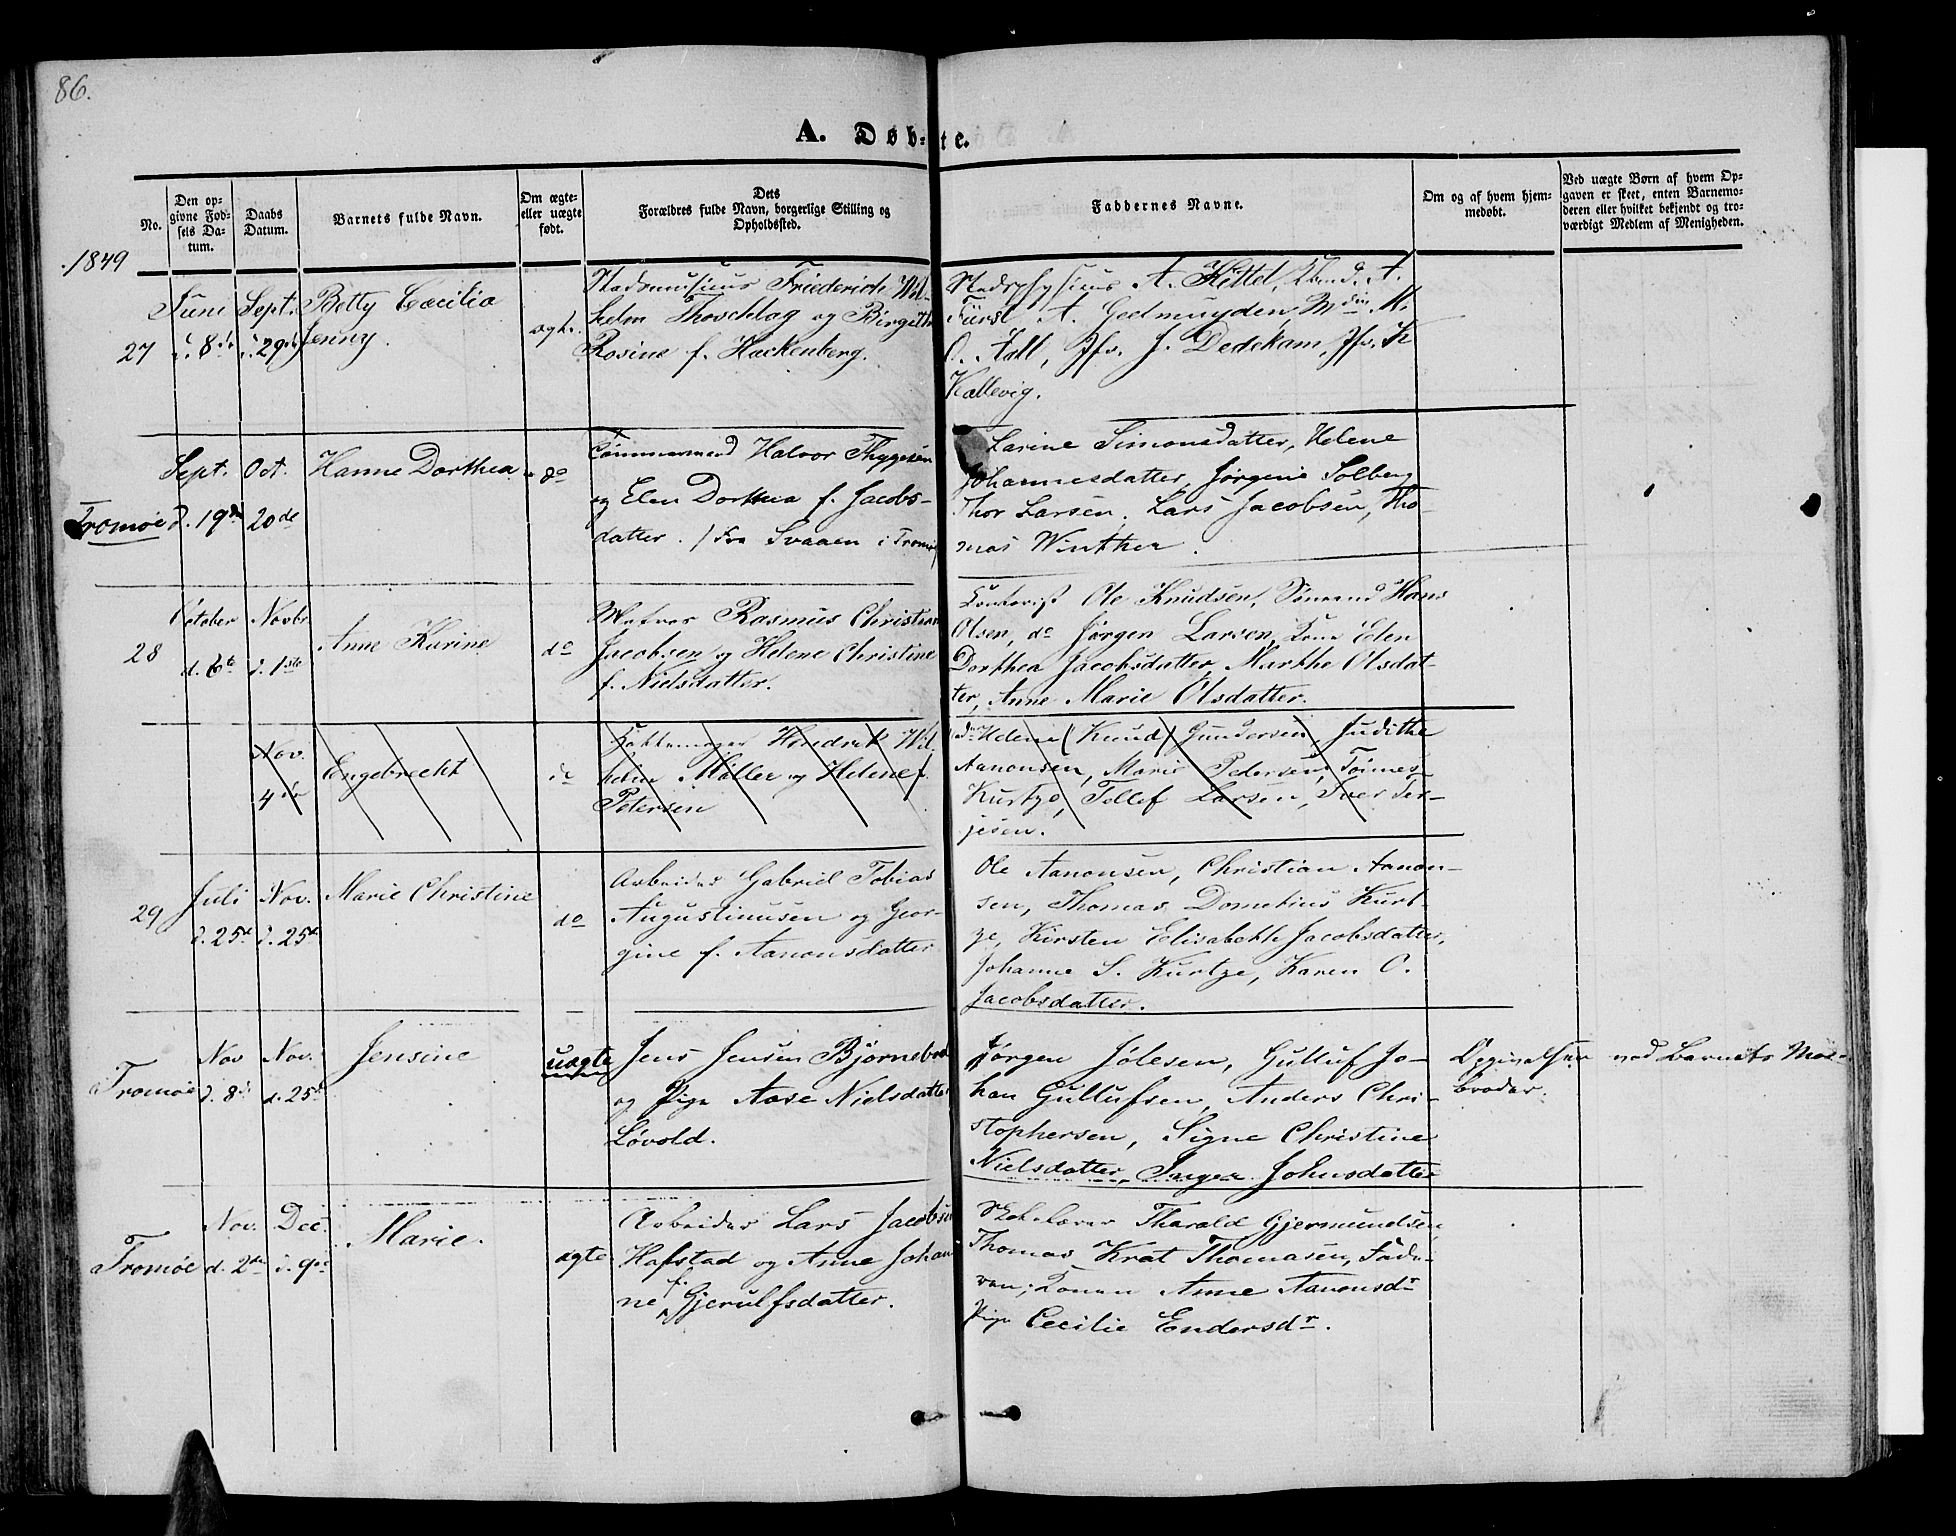 86.
A. Døb-te.
No.
Den op-
givne Fød-
sels Da-
tum.
Daabs
Datum.
Barnets fulde Navn.
Om ægte-
eller uægte
født.
Dets
Forældres fulde Navn, borgerlige Stilling og
Opholdssted.
Faddernes Navne.
Om og af hvem hjem-
medøbt.
Ved uægte Børn af hvem Op-
gaven er skeet, enten Barnemo-
deren eller hvilket bekjendt og tro-
værdigt Medlem af Menigheden.
1849
27
Juni
d. 8de
Sept.
d. 29de
Betty Cæcilia
Jenny.
ægte.
Stadsmusicus Friederich Wil-
helm Thoschlag og Birgitte
Rosine f. Hackenberg.
Stadsphysicus A. Kittel, A.
Fürst A. Geelmuyden M. M.
O. Aall, Jfr. J. Dedekam, Jfr. K
Kallevig.
Tromøe
Sept.
d. 19de
Oct.
20de
Hanne Dorthea
do
Tømmermand Halvor Thygesen
og Elen Dorthea f. Jacobs-
datter. / fra Svaaen i Tromø/
Larine Simonsdatter, Helene
Johannesdatter, Jørgene Solberg
Thor Larsen, Lars Jacobsen, Tho-
mas Winther.
28
October
d. 6te
Novbr
d. 1ste
Anne Karine
do
Matros Rasmus Christian
Jacobsen og Helene Christine
f. Nielsdatter.
Ole Knudsen, Sømand Hans
Olsen, do Jørgen Larsen, Kone Elen
Dorthea Jacobsdatter, Marthe Olsdat-
ter, Anne Marie Olsdatter.
Nov.
4de
Engebrecht
do
Pottemager Hendrik Wil-
helm Møller og Helene f.
Petersen
Helene (Knud) Gundersen, Judithe
Aanonsen, Marie Pedersen, Tønnes
Kurtze, Tellef Larsen, Iver Ter-
jesen.
29
Juli
d. 25de
Nov.
d. 25de
Marie Christine
do
Arbeider Gabriel Tobias
Augustinusen og Geor-
gine f. Aanonsdatter
Ole Aanonsen, Christian Aanon-
sen, Thomas Dometius Kurt-
ze, Kirsten Elisabeth Jacobsdatter,
Johanne S. Kurtze, Karen C.
Jacobsdatter.
Tromøe
Nov
d. 8de
Nov.
d. 25de
Jensine
uægte
Jens Jensen Bjørnebo
og Pige Aase Nielsdatter
Løvold.
Jørgen Jolesen, Gulluf Jo-
han Gullufsen, Anders Chri-
stophersen, Signe Christine
Nielsdatter, Inger Johnsdatter
Opgivelsen ved Barnets Mor-
broder.
Tromøe
Nov.
d. 2den
Dec.
d. 9de
Marie.
ægte
Arbeider Lars Jacobsen
Hafstad og Anne Johan
ne f. Gjerulfsdatter.
Skolelærer Tharald Gjermundsen,
Thomas Krat Thomasen, Fade-
ren, Konen Anne Aanonsdr
Pige Cecilie Endersdr.